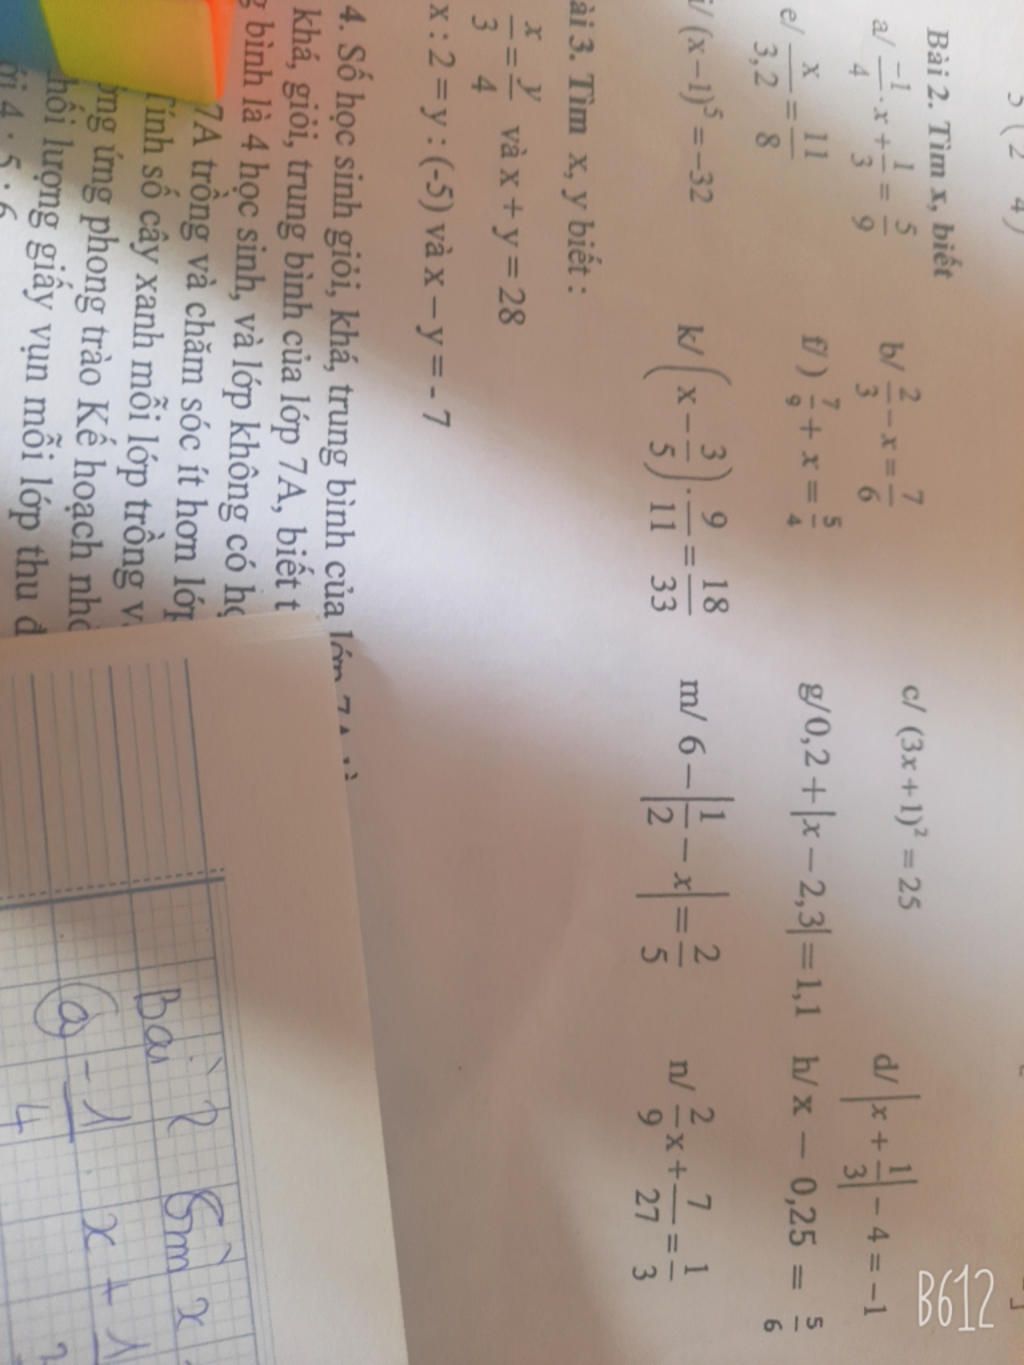 Bài 2. Tìm x, biết
a/ -1/4 . x + 1/3 = 5/9 b/ 2/3 - x = 7/6 c/ (3x+1)² = 25 d/ |x + 1/3| - 4 = -1
e/ x/3,2 = 11/8 f/ ) 7/9 + x = 5/4 g/ 0,2 + |x - 2,3| = 1,1 h/ x - 0,25 = 5/6
i/ (x-1)⁵ = -32 k/ (x - 3/5) . 9/11 = 18/33 m/ 6 - |1/2 - x| = 2/5 n/ 2/9 x + 7/27 = 1/3
ài 3. Tìm x, y biết :
x/3 = y/4 và x + y = 28
x : 2 = y : (-5) và x – y = - 7
4. Số học sinh giỏi, khá, trung bình của lớp 7A
khá, giỏi, trung bình của lớp 7A, biết t
g bình là 4 học sinh, và lớp không có
7A trồng và chăm sóc ít hơn lớp
Tính số cây xanh mỗi lớp trồng v
ng ứng phong trào Kế hoạch nhỏ
hối lượng giấy vụn mỗi lớp thu đ
4 : 5 : 6
Bài 2 Tìm x
a) -1/4 . x + 1
B612